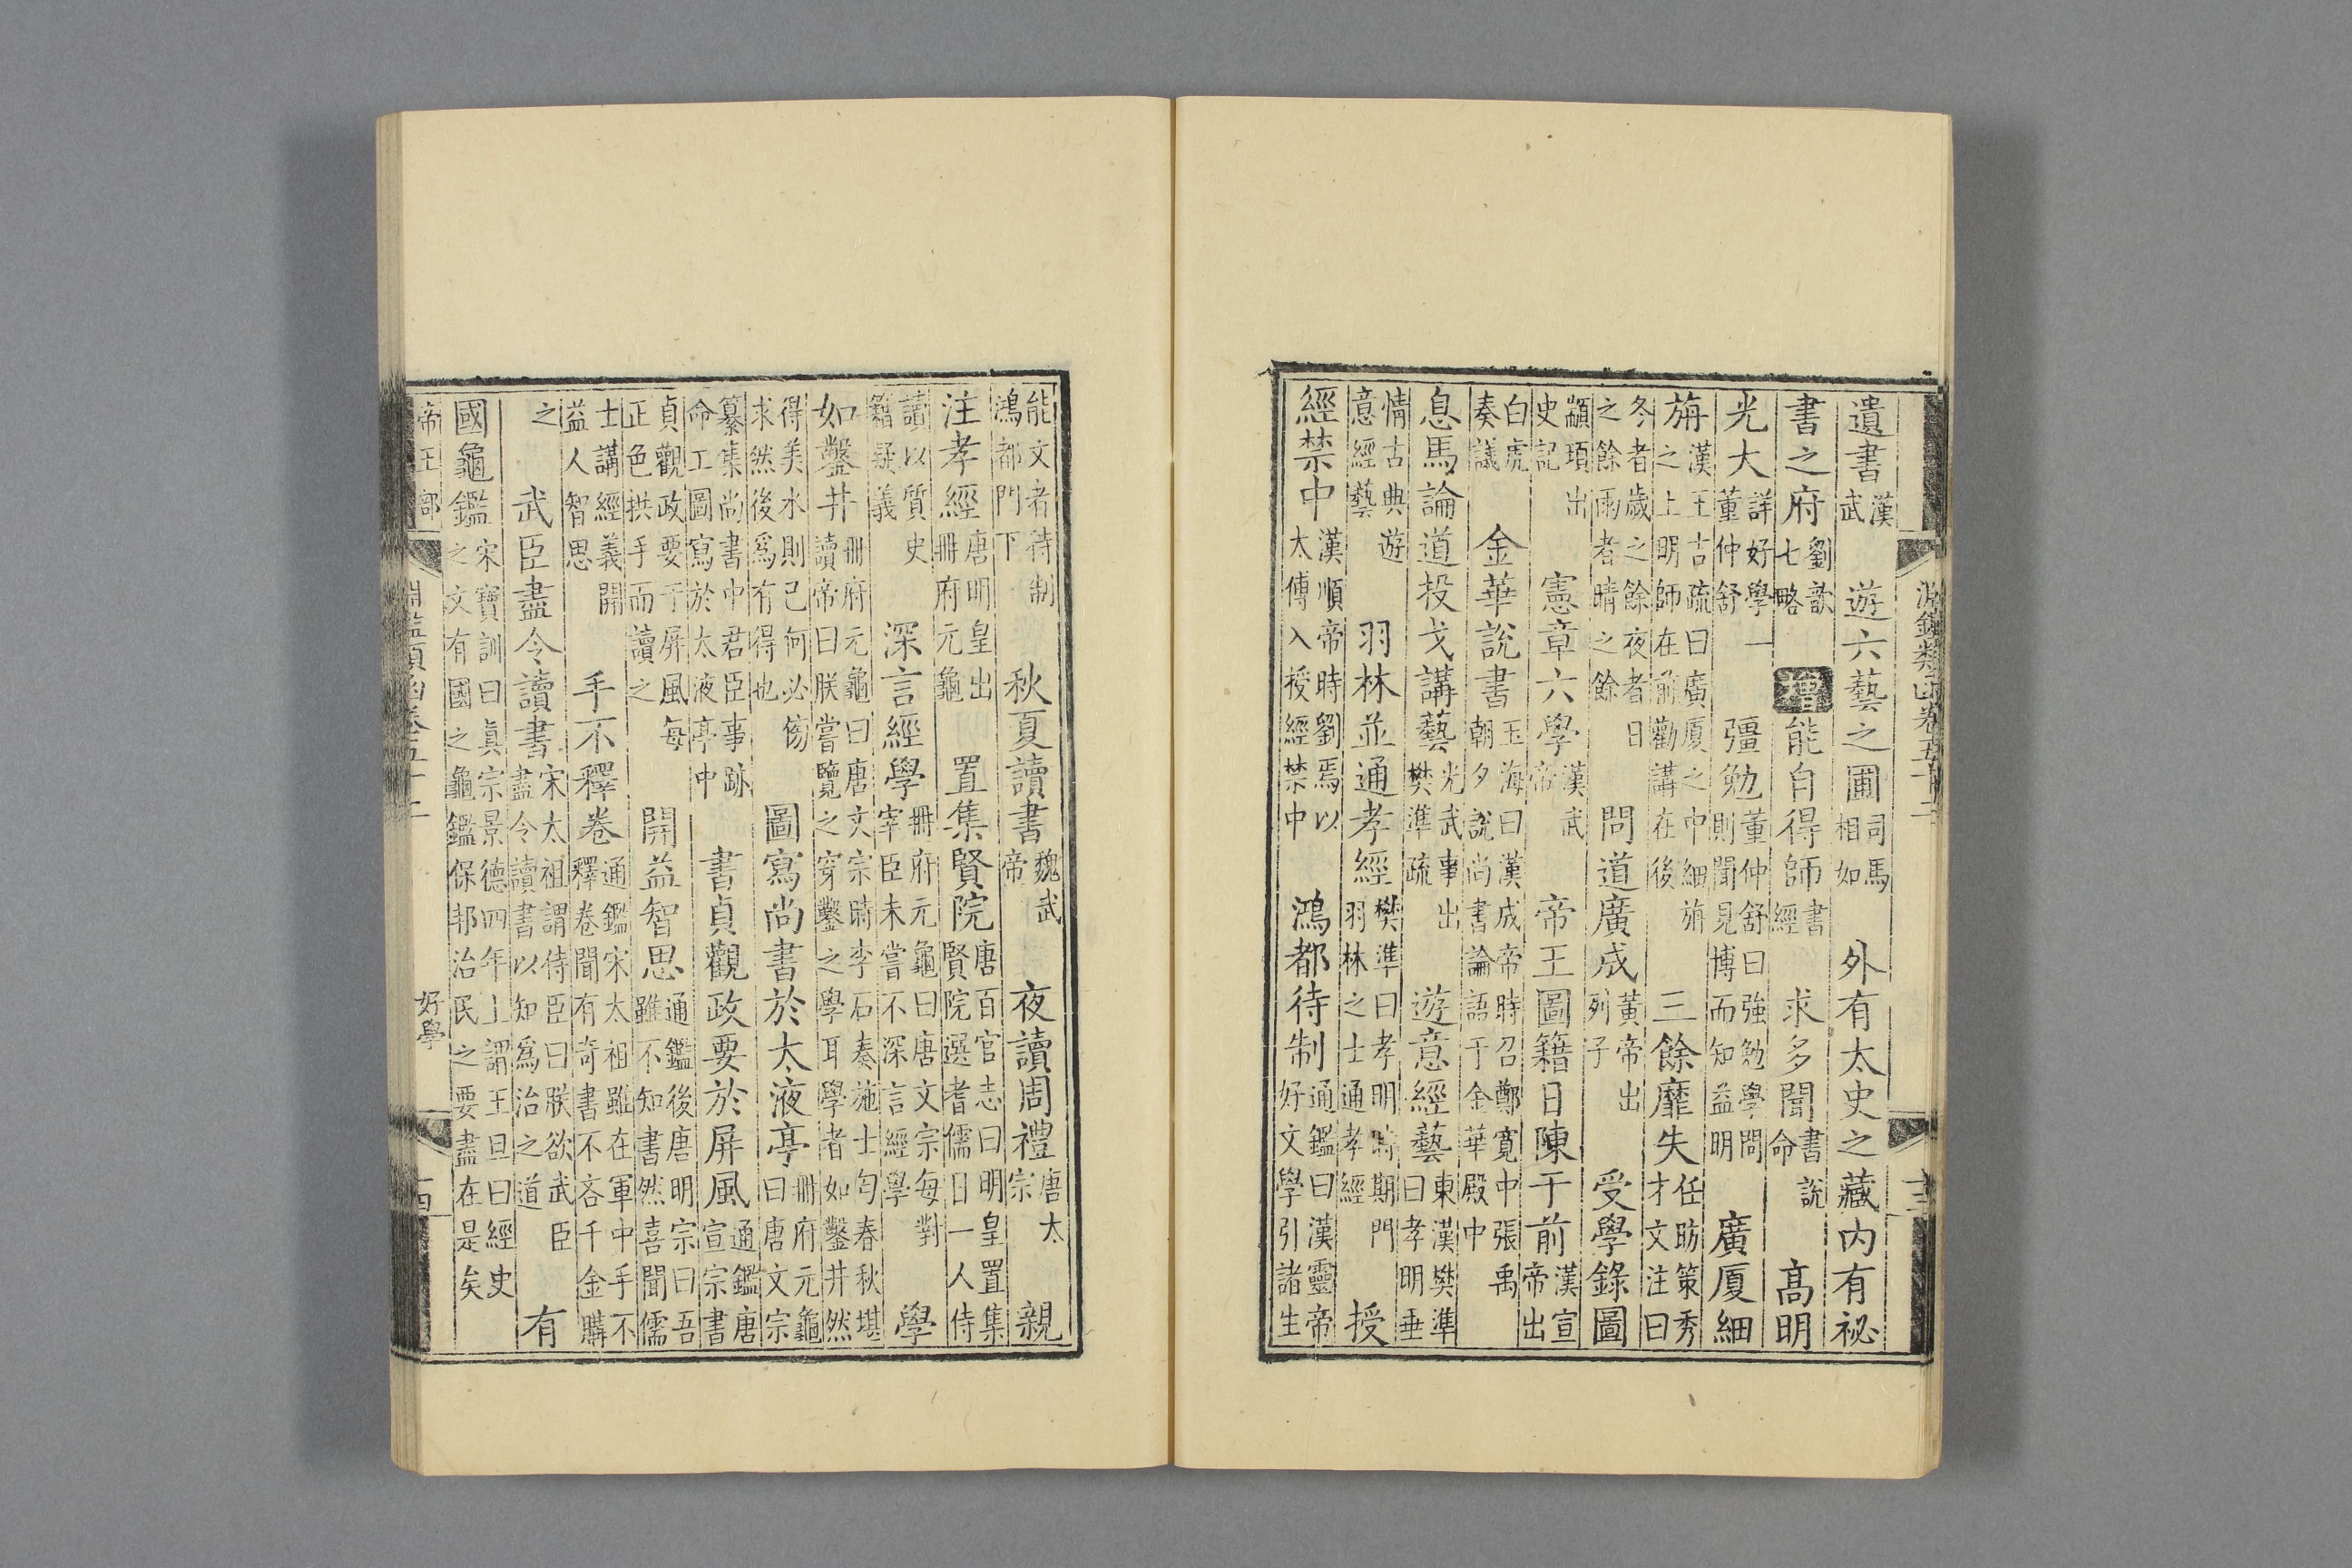 遺書漢武 遊六藝之圃司馬相如 外有太史之藏内有祕
書之府劉歆七略 增能自得師書經 求多聞書說命 高明
光大詳好學一董仲舒 彊勉董仲舒曰強勉學問則聞見博而知益明 廣厦細
旃漢王吉疏曰廣厦之中細旃之上明師在前勸講在後 三餘靡失任昉策秀才文注曰
冬者歲之餘夜者日之餘雨者晴之餘 問道廣成黃帝出列子 受學錄圖
顓頊出史記 憲章六學漢武帝 帝王圖籍日陳于前漢宣帝出
白虎奏議 金華說書玉海曰漢成帝時召鄭寬中張禹朝夕說尚書論語于金華殿中
息馬論道投戈講藝光武事出樊準疏 遊意經藝東漢樊準曰孝明垂
情古典遊意經藝 羽林並通孝經樊準曰孝明時期門羽林之士通孝經 授
經禁中漢順帝時劉焉以太傅入授經禁中 鴻都待制通鑑曰漢靈帝好文學引諸生
能文者待制鴻都門下 秋夏讀書魏武帝 夜讀周禮唐太宗 親
注孝經唐明皇出冊府元龜 置集賢院唐百官志曰明皇置集賢院選耆儒日一人侍
讀以質史籍疑義 深言經學冊府元龜曰唐文宗每對宰臣未嘗不深言經學 學
如鑿井冊府元龜曰唐文宗時李石奏施士匄春秋堪讀帝曰朕嘗覽之穿鑿之學耳學者如鑿井然
得美水則已何必傷求然後爲有得也 圖寫尚書於太液亭冊府元龜曰唐文宗
纂集尚書中君臣事跡命工圖寫於太液亭中 書貞觀政要於屏風通鑑唐宣宗書
貞觀政要于屏風每正色拱手而讀之 開益智思通鑑後唐明宗曰吾雖不知書然喜聞儒
士講經義開益人智思 手不釋卷通鑑宋太祖雖在軍中手不釋卷聞有奇書不吝千金購
之 武臣盡令讀書宋太祖謂侍臣曰朕欲武臣盡令讀書以知爲治之道 有
國龜鑑宋寶訓曰眞宗景德四年上謂王旦曰經史之文有國之龜鑑保邦治民之要盡在是矣
帝王部 淵鑑類函卷五十二 好學 十四